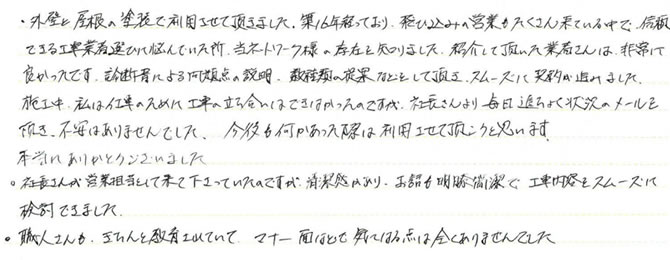 ・外壁と屋根の塗装で利用させて頂きました。築16年経っており、飛び込みの営業もたくさん来ている中で、信頼
できる工事業者選びに悩んでいた所、当ネットワーク様の存在を知りました。紹介して頂いた業者さんは、非常に
良かったです。診断書による問題点の説明、数種類の提案などをして頂き、スムーズに契約が進みました。
施工中、私は仕事のために工事の立ち合いはできなかったのですが、社長さんより毎日進ちょく状況のメールを
頂き、不安はありませんでした。今後も何かあった際は利用させて頂こうと思います。
本当にありがとうございました
。社長さんが営業担当として来て下さっていたのですが、清潔感があり、お話も明瞭簡潔で工事内容をスムーズに
検討できました。
。職人さんも、きちんと教育されていて、マナー面などで気になる点は全くありませんでした